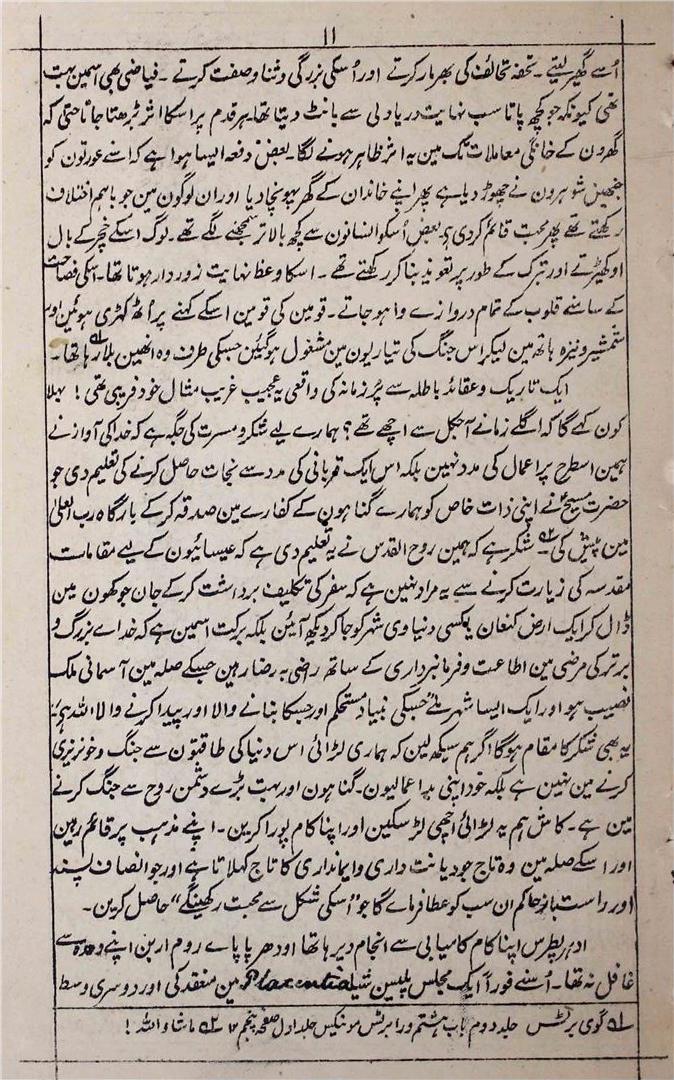 ۱۱
اُسے گھیر لیتے ۔ تحفہ تحائف کی بھرمار کرتے اور اُسکی بزرگی و ثنا و صفت کرتے ۔ فیاضی بھی اسمین بہت
تھی کیونکہ جو کچھ پاتا سب نہایت دریا دلی سے بانٹ دیتا تھا۔ ہر قدم پر اسکا اثر بڑھتا جاتا حتی کہ
گھرون کے خانگی معاملات تک مین یہ اثر ظاہر ہونے لگا۔ بعض دفعہ ایسا ہوا ہے کہ اسنے عورتون کو
جنھین شوہرون نے چھوڑ دیا ہے پھر اپنے خاندان کے گھر پہونچا دیا اور ان لوگون مین جو باہم اختلاف
رکھتے تھے پھر محبت قائم کر دی؛ بعض اُسکو انسانون سے کچھ بالاتر سمجھنے لگے تھے۔ لوگ اسکے خچر کے بال
اوکھیڑتے اور تبرک کے طور پر تعویذ بنا کر رکھتے تھے ۔ اسکا وعظ نہایت زوردار ہوتا تھا۔ اسکی فصاحت
کے سامنے قلوب کے تمام دروازے وا ہو جاتے۔ قومین کی قومین اسکے کہنے پر اُٹھ کھڑی ہوئین اور
شمشیر و نیزہ ہاتھ مین لیکر اس جنگ کی تیاریون مین مشغول ہوگئین جسکی طرف وہ انھین بلا رہا تھا۔ ۵۱
ایک تاریک و عقائد باطلہ سے پُر زمانہ کی واقعی یہ عجیب غریب مثال خود فریبی تھی ! بھلا
کون کہے گا کہ اگلے زمانے آجکل سے اچھے تھے؟ ہمارے لیے شکر و مسرت کی جگہ ہے کہ خدا کی آواز نے
ہمین اسطرح پر اعمال کی مدد نہین بلکہ اس ایک قربانی کی مدد سے نجات حاصل کرنے کی تعلیم دی جو
حضرت مسیحؑ نے اپنی ذات خاص کو ہمارے گناہون کے کفارے مین صدقہ کر کے بارگاہ رب العلیٰ
مین پیش کی ۵۲۔ شکر ہے کہ ہمین روح القدس نے یہ تعلیم دی ہے کہ عیسائیون کے لیے مقامات
مقدسہ کی زیارت کرنے سے یہ مراد نہین ہے کہ سفر کی تکلیف برداشت کر کے جان جوکھون مین
ڈال کر ایک ارض کنعان یا کسی دنیاوی شہر کو جا کر دیکھ آئین بلکہ برکت اسمین ہے کہ خدائے بزرگ و
برتر کی مرضی مین اطاعت و فرمانبرداری کے ساتھ راضی بہ رضا رہین جسکے صلہ مین آسمانی ملک
نصیب ہو اور ایک ایسا شہر ملے جسکی بنیاد مستحکم اور جسکا بنانے والا اور پیدا کرنے والا اللہ ہی ہے
یہ بھی شکر کا مقام ہوگا اگر ہم سیکھ لین کہ ہماری لڑائی اس دنیا کی طاقتون سے جنگ و خونریزی
کرنے مین نہین ہے بلکہ خود اپنی بد اعمالیون۔ گناہون اور بہت بڑے دشمن روح سے جنگ کرنے
مین ہے۔ کاش ہم یہ لڑائی اچھی لڑ سکین اور اپنا کام پورا کرین۔ اپنے مذہب پر قائم رہین
اور اسکے صلہ مین وہ تاج جو دیانت داری و ایمانداری کا تاج کہلاتا ہے اور جو انصاف پسند
اور راست باز حاکم ان سب کو عطا فرمائے گا جو "اُسکی شکل سے محبت رکھینگے" حاصل کرین۔
ادہر پطرس اپنا کام کامیابی سے انجام دیرہا تھا اودھر پاپاے روم اربن اپنے وعدہ سے
غافل نہ تھا۔ اُسنے فوراً ایک مجلس پلیسن شیا Placentia مین منعقد کی اور دوسری وسط
۵۱ گوی برٹس جلد دوم باب ہشتم و رابرٹس مونکیس جلد اول صفحہ پنجم ۱۲ ۵۲ ماشاء اللہ !